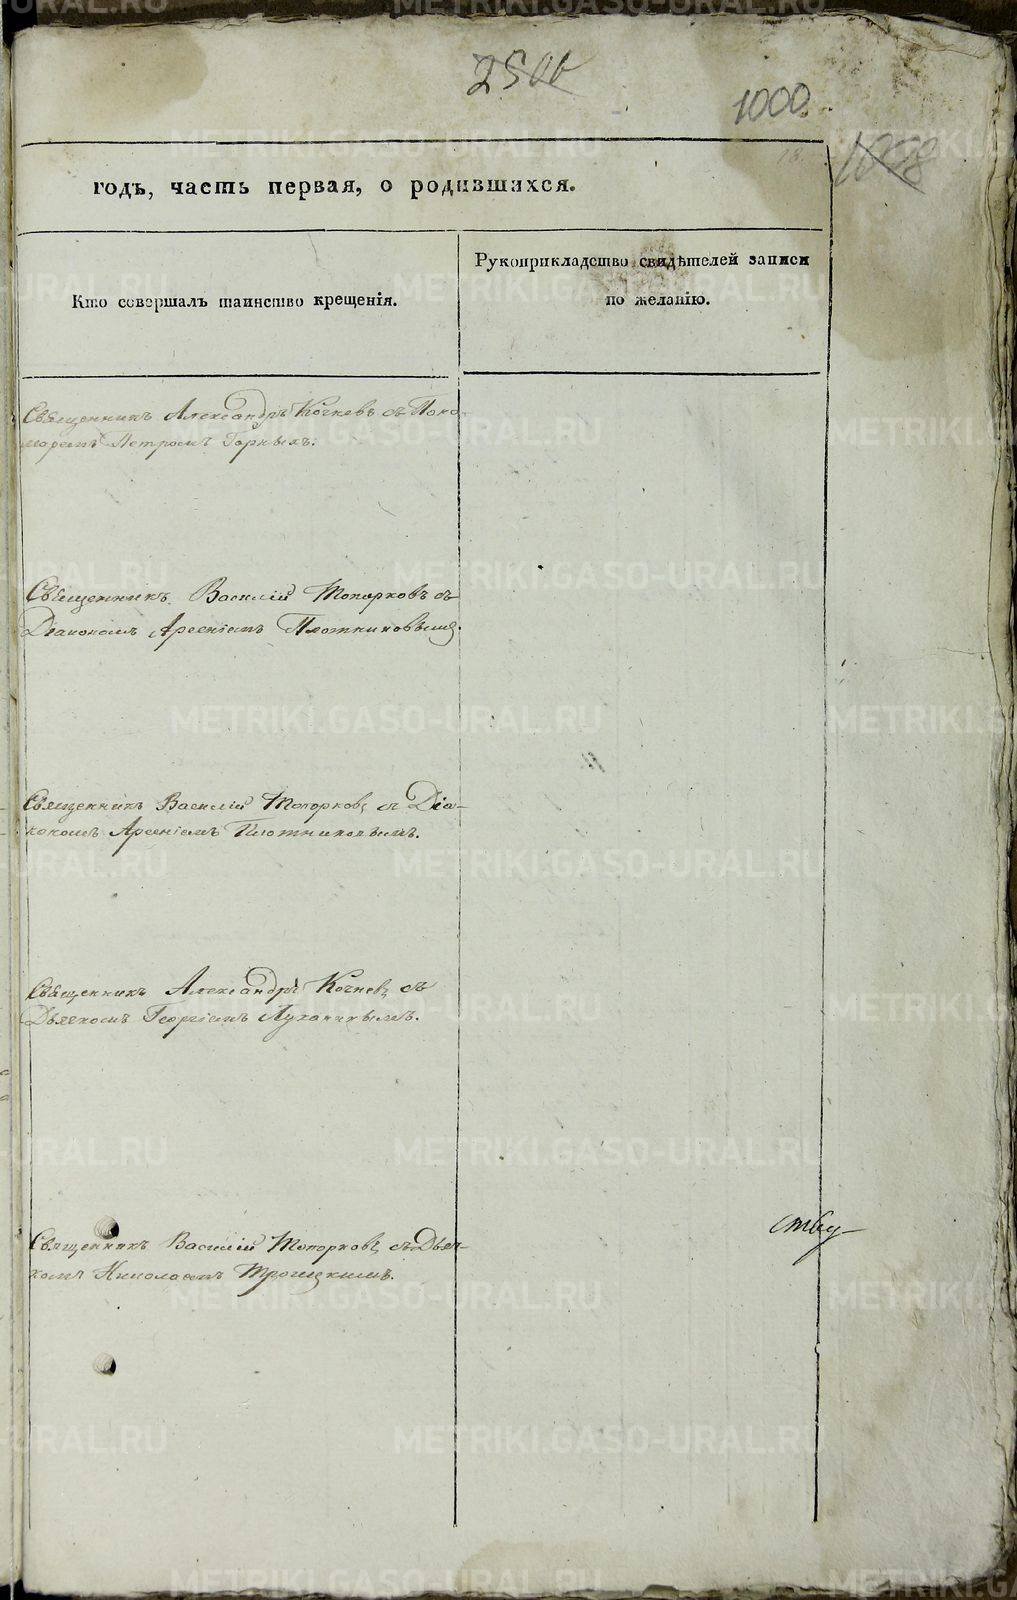 2500
1000
1008
годъ, часть первая, о родившихся.
Кто совершалъ таинство крещенія.
Рукоприкладство свидѣтелей записи
по желанію.
Священникъ Александръ Кочневъ съ Поно
маремъ Петромъ Горныхъ.
Священникъ Василій Топорковъ съ
Діакономъ Арсеніемъ Плотниковымъ.
Священникъ Василій Топорковъ съ Діа-
кономъ Арсеніемъ Плотниковымъ.
Священникъ Александръ Кочневъ съ
Дьячкомъ Георгіемъ Луканинымъ.
Священникъ Василій Топорковъ съ Дьяч-
комъ Николаемъ Троицкимъ.
ству
METRIKI.GASO-URAL.RU